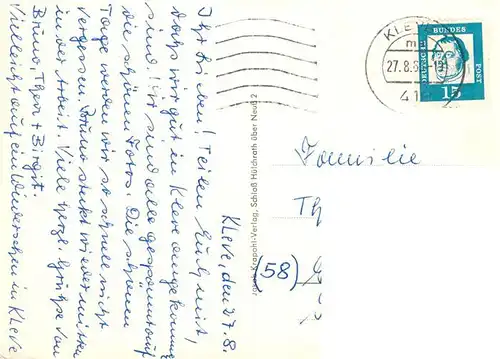 Kleve, den 27.8.
Ihr Lieben! Teilen Euch mit,
dass wir gut in Kleve angekommen
sind. Wir sind alle gespannt auf
die schönen Fotos. Die schönen
Tage werden wir so schnell nicht
vergessen. Bruno steckt wieder mitten
in der Arbeit. Viele herzl. Grüße von
Bruno, Thea + Birgit.
Vielleicht auf ein Wiedersehen in Kleve
-Krapohl-Verlag, Schloß Hülchrath über Neuß 2
KLEVE
27.8.6
41
DEUTSCHE
BUNDES
POST
15
Familie
Th
(58)